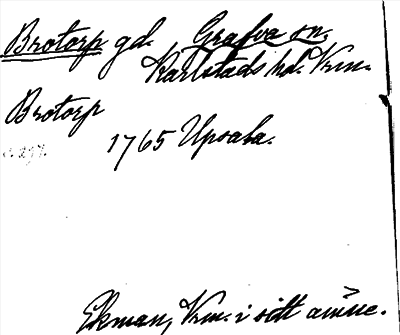 Brotorp gd. Grafva sn,
Karlstads hd. Vrm.
Brotorp
1765 Upsala.
Ekman, Vrm. i sitt ämne.